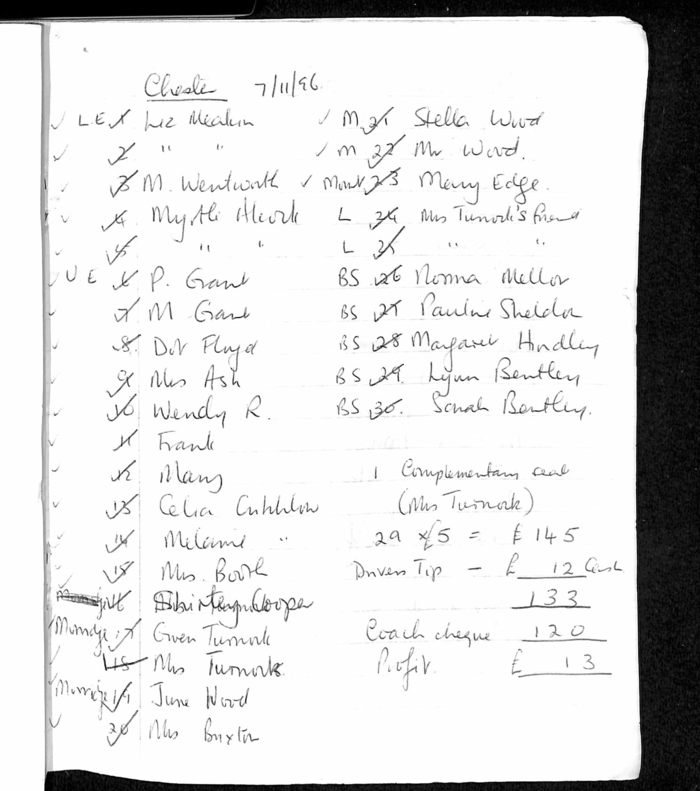 Chester 7/11/96
L.E 1 Liz Meakin
2 " "
3 M. Wentworth
4 Myrtle Alcock
5 " "
U E 6 P. Grant
7 M Grant
8. Dot Floyd
9 Mrs Ash
10 Wendy R.
11 Frank
12 Mary
13 Celia Critchlow
14 Melanie "
15 Mrs. Booth
16 Shirley Cooper
Morridge 17 Gwen Turnock
18 Mrs Turnock
Morridge 19 June Wood
20 Mrs Buxton
M 21 Stella Wood
M 22 Mr Wood.
Mount 23 Mary Edge.
L 24 Mrs Turnock's friend
L 25 " "
BS 26 Norma Mellor
BS 27 Pauline Sheldon
BS 28 Margaret Hindley
BS 29. Lynn Bentley
BS 30. Sarah Bentley.
1 Complementary seat
(Mrs Turnock)
29 x £5 = £145
Drivers Tip - £ 12 Cash
133
Coach cheque 120
Profit £ 13